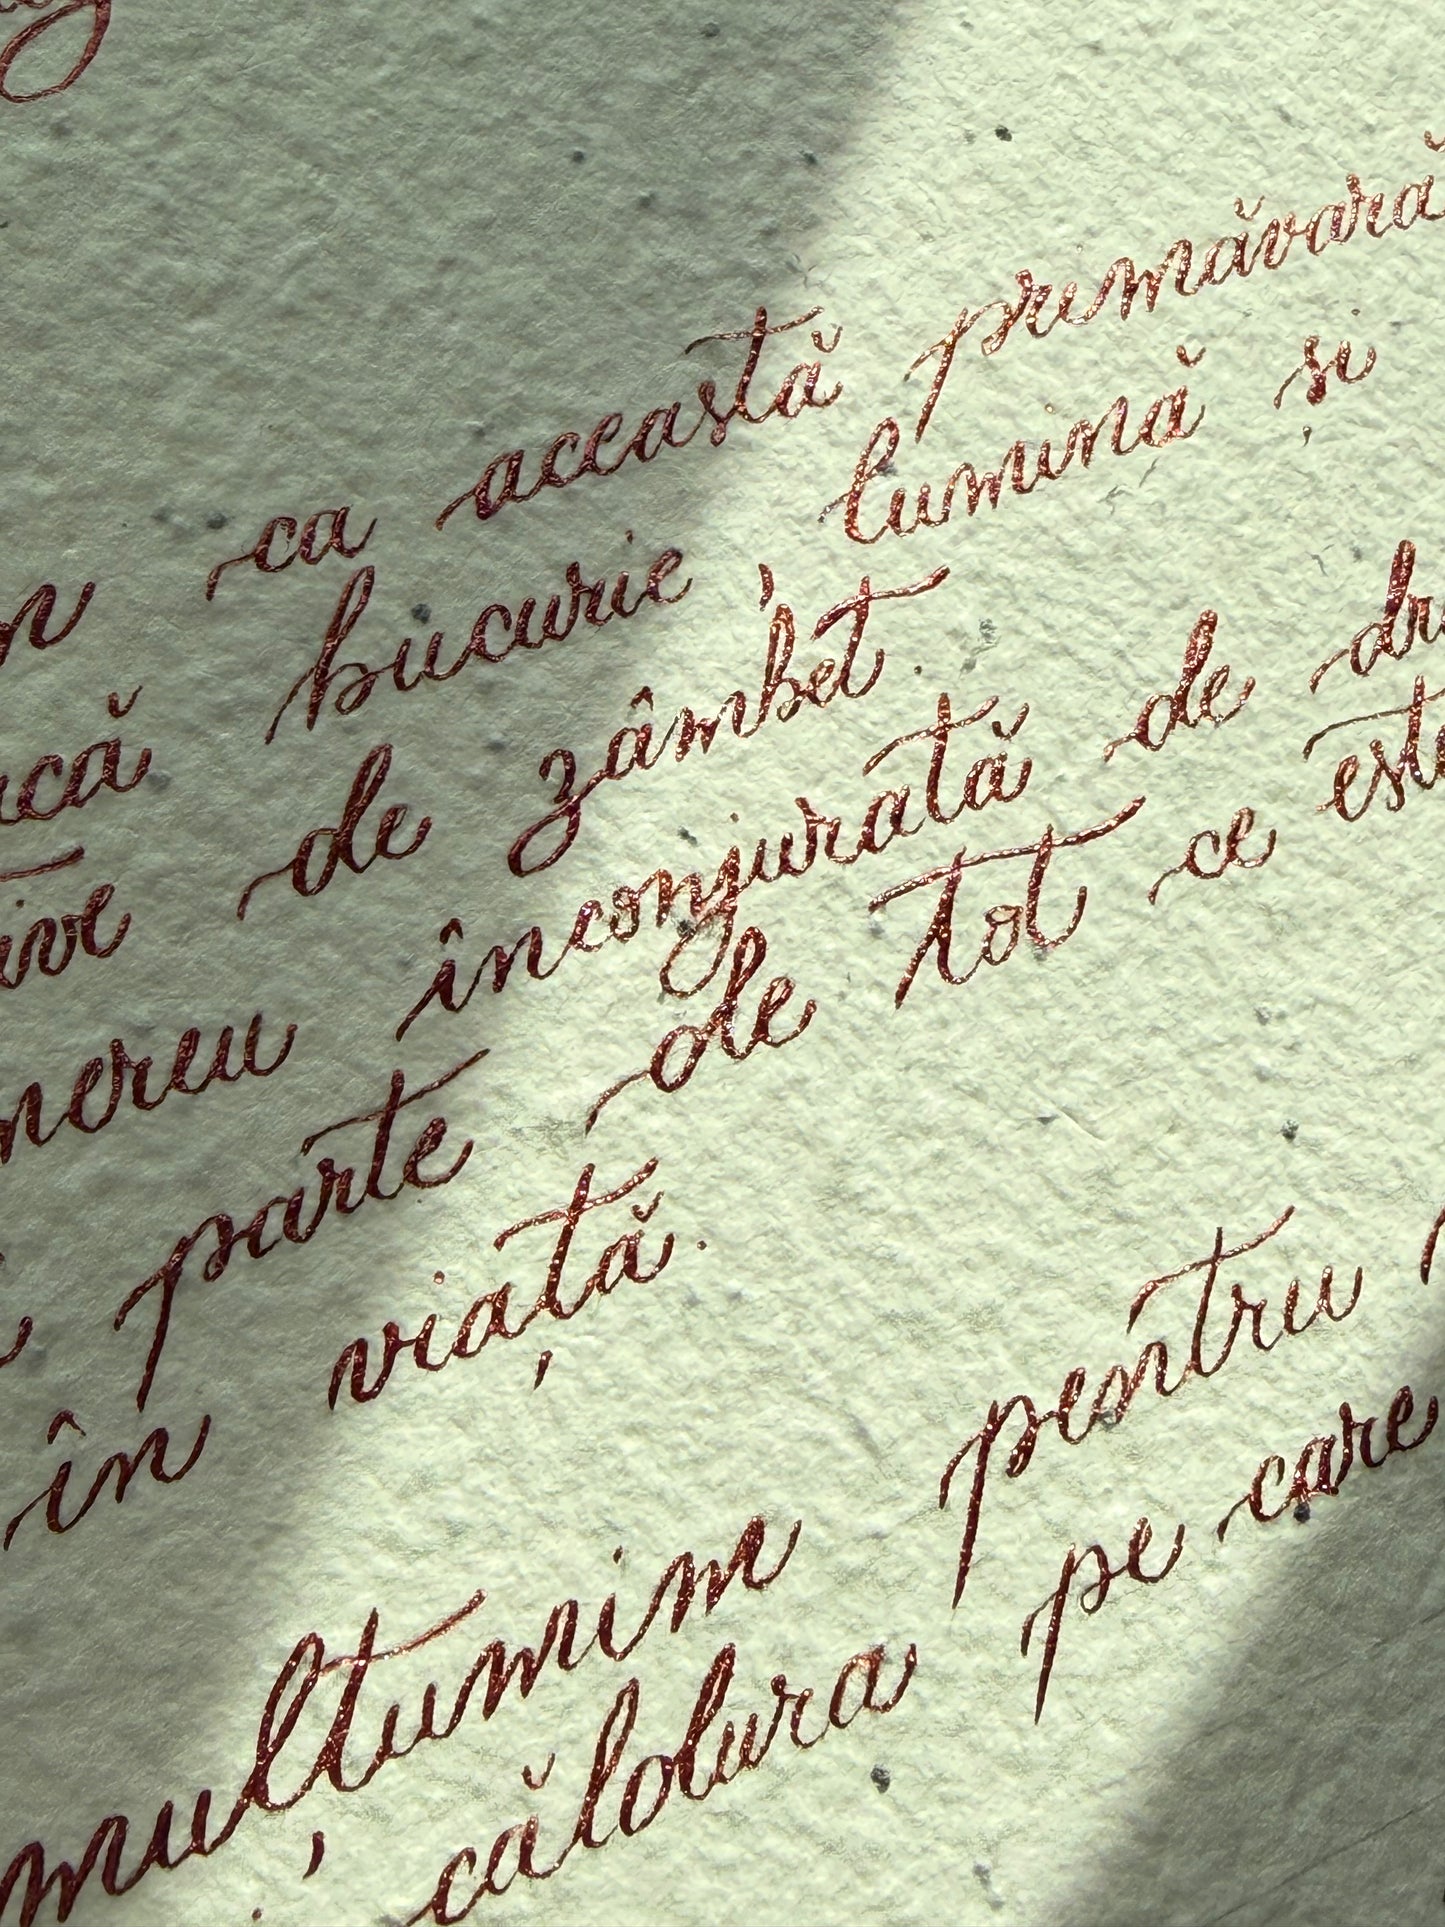 ca această primăvară
bucurie, lumină și
de zâmbet.
mereu înconjurată de
parte de tot ce
în viață.
mulțumim pentru
căldura pe care